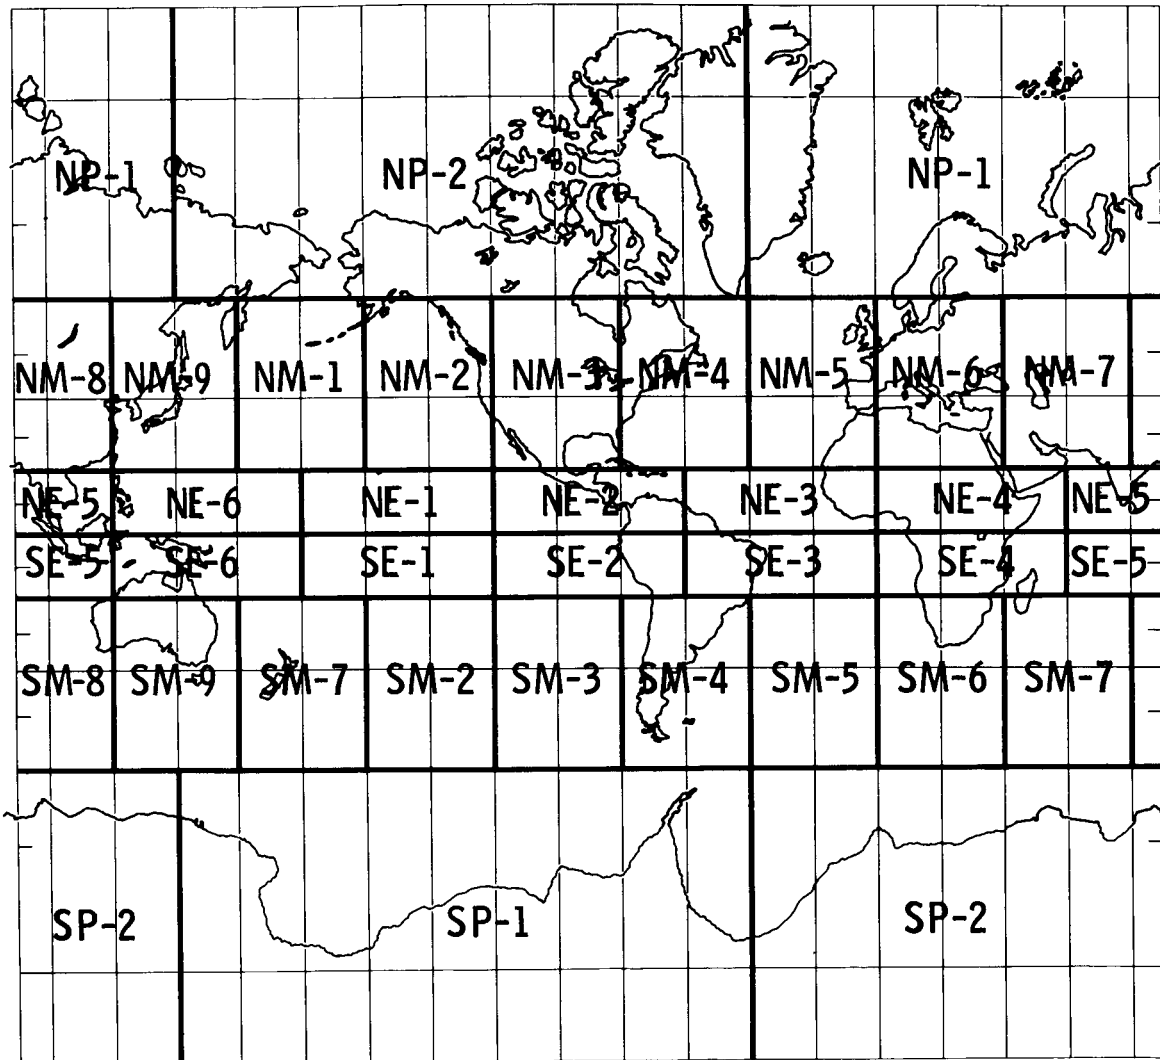 NP-1 NP-2 NP-1
NM-8 NM-9 NM-1 NM-2 NM-3 NM-4 NM-5 NM-6 NM-7
NE-5 NE-6 NE-1 NE-2 NE-3 NE-4 NE-5
SE-5 SE-6 SE-1 SE-2 SE-3 SE-4 SE-5
SM-8 SM-9 SM-7 SM-2 SM-3 SM-4 SM-5 SM-6 SM-7
SP-2 SP-1 SP-2